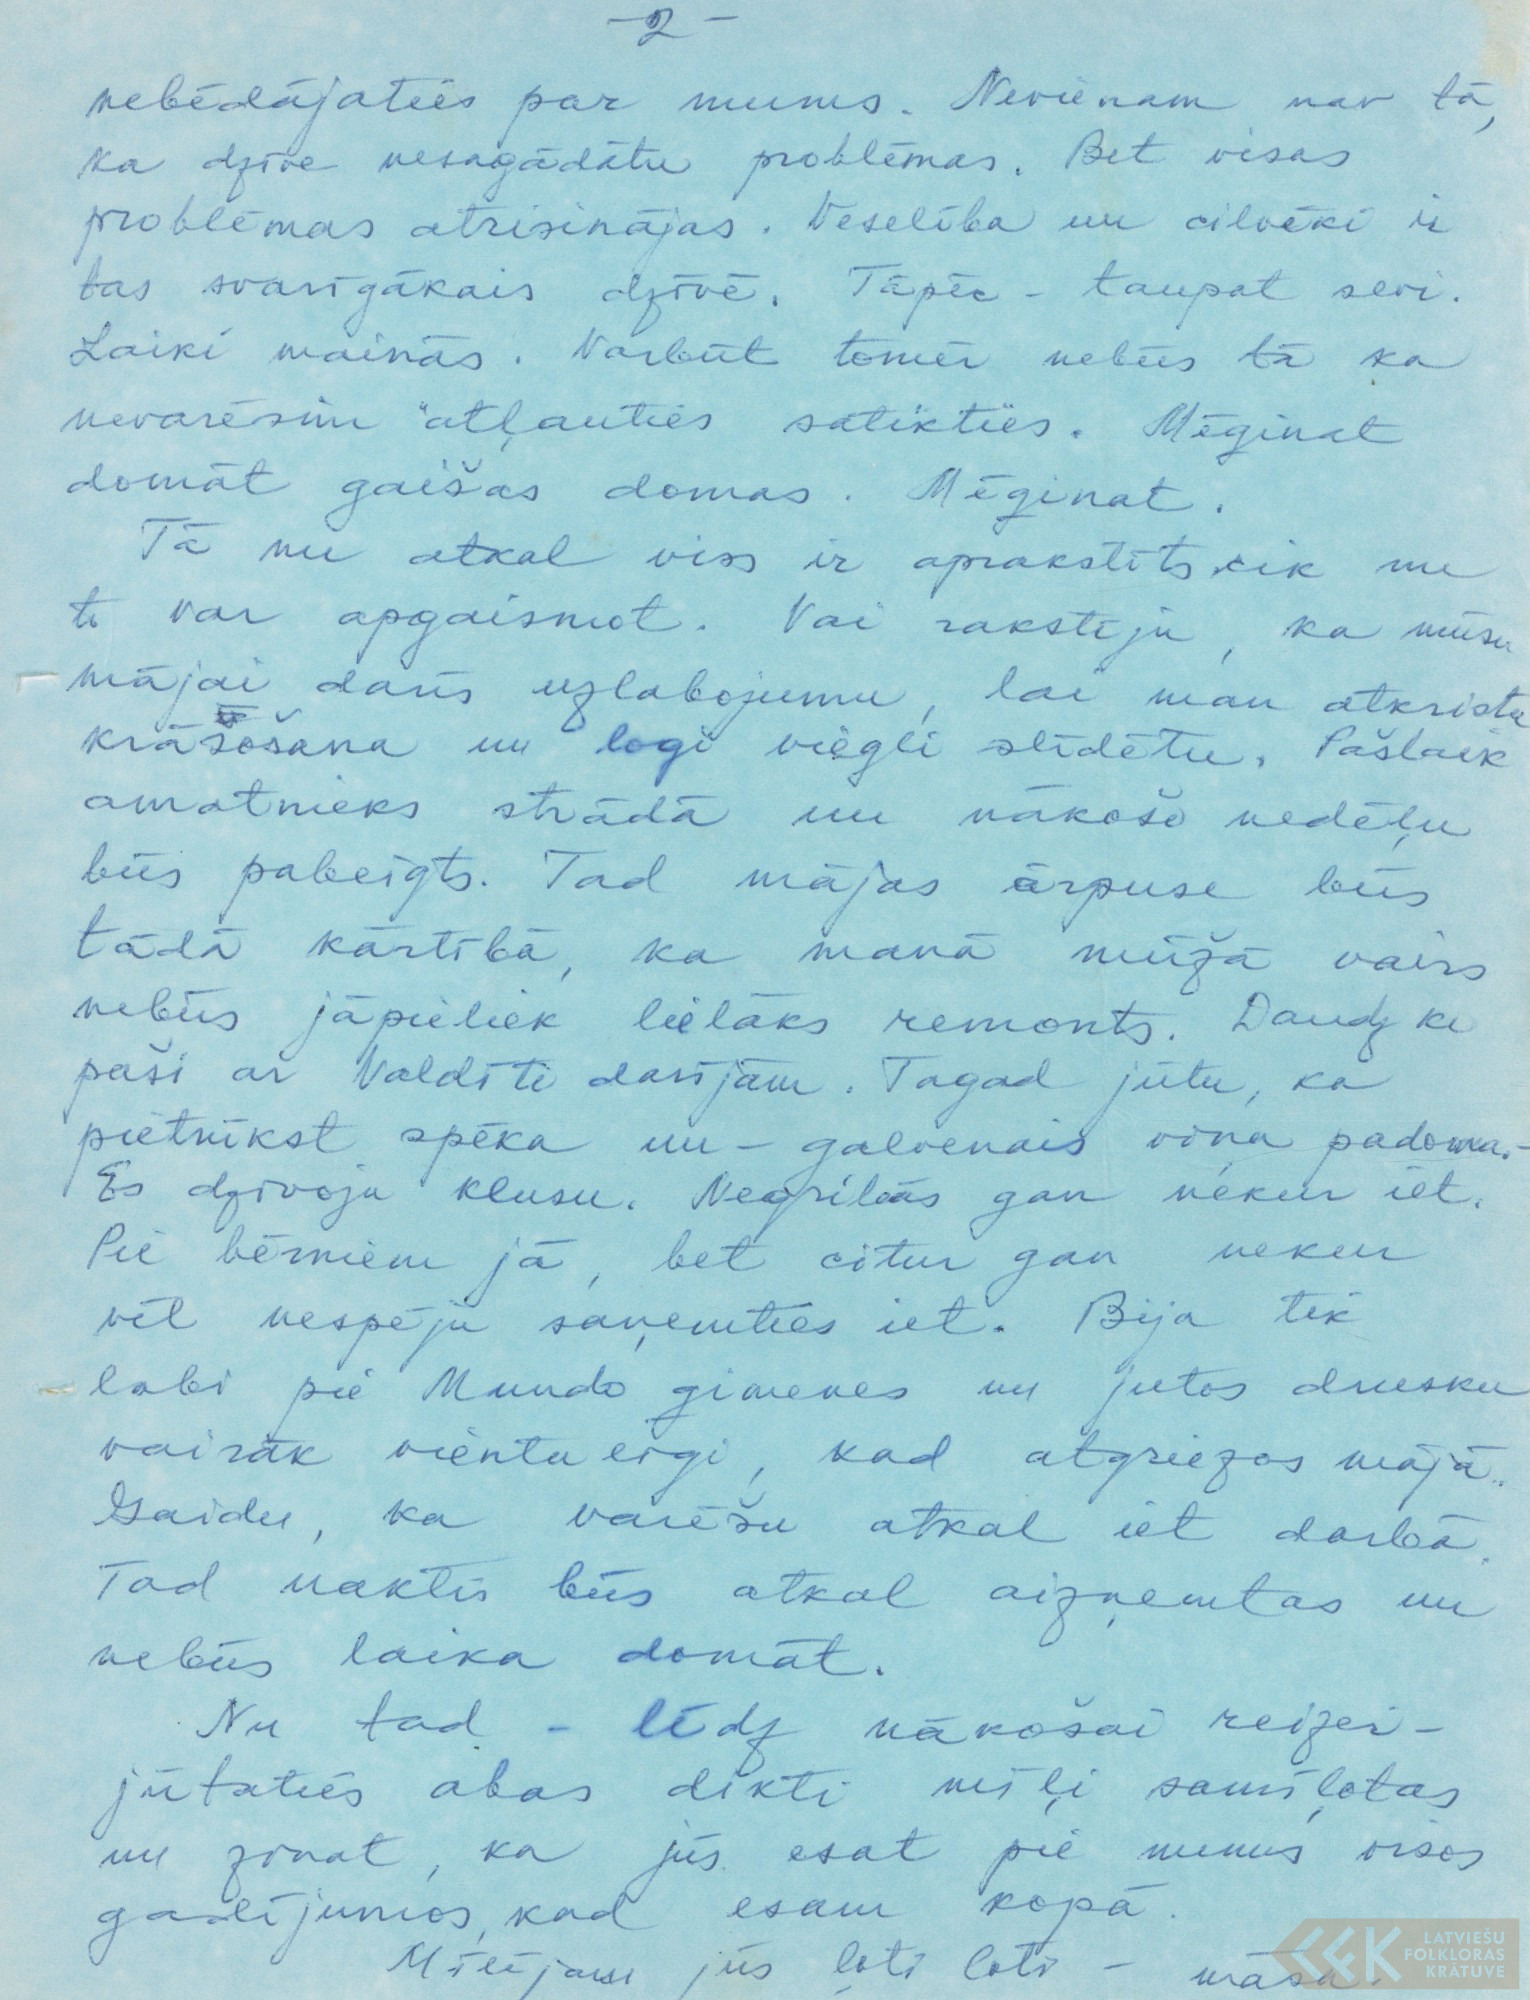 - 2 -
nebēdājaties par mums. Nevienam nav tā,
ka dzīve nesagādātu problēmas. Bet visas
problēmas atrisinājas. Veselība un cilvēki ir
tas svarīgākais dzīvē. Tāpēc - taupat sevi.
Laiki mainās. Varbūt tomēr nebūs tā ka
nevarēsim "atļauties satikties. Mēģinat
domāt gaišas domas. Mēģinat.
Tā nu atkal viss ir aprakstīts cik nu
to var apgaismot. Vai rakstīju, ka mūsu
mājai darīs uzlabojumu, lai man atkristu
krāšošana un logi viegli slīdētu. Pašlaik
amatnieks strādā un nākošo nedēļu
būs pabeigts. Tad mājas ārpuse būs
tādā kārtībā, ka manā mūžā vairs
nebūs jāpieliek lielāks remonts. Daudz ko
paši ar Valdīti darījām. Tagad jūtu, ka
pietrūkst spēka un - galvenais viņa padoma.-
Es dzīvoju klusu. Negribās gan nekur iet.
Pie bērniem jā, bet citur gan nekur
vēl nespēju saņemties iet. Bija tik
labi pie Mundo ģimenes un jutos drusku
vairāk vientulīgi, kad atgriezos mājā..
Gaidu, ka varēšu atkal iet darbā.
Tad naktis būs atkal aizņemtas un
nebūs laika domāt.
Nu tad - līdz nākošai reizei -
jūtaties abas dikti mīļi samīļotas
un zinat, ka jūs esat pie mums visos
gadījumos, kad esam kopā.
Mīlējam jūs ļoti ļoti - māsa.
LATVIEŠU
FOLKLORAS
KRĀTUVE